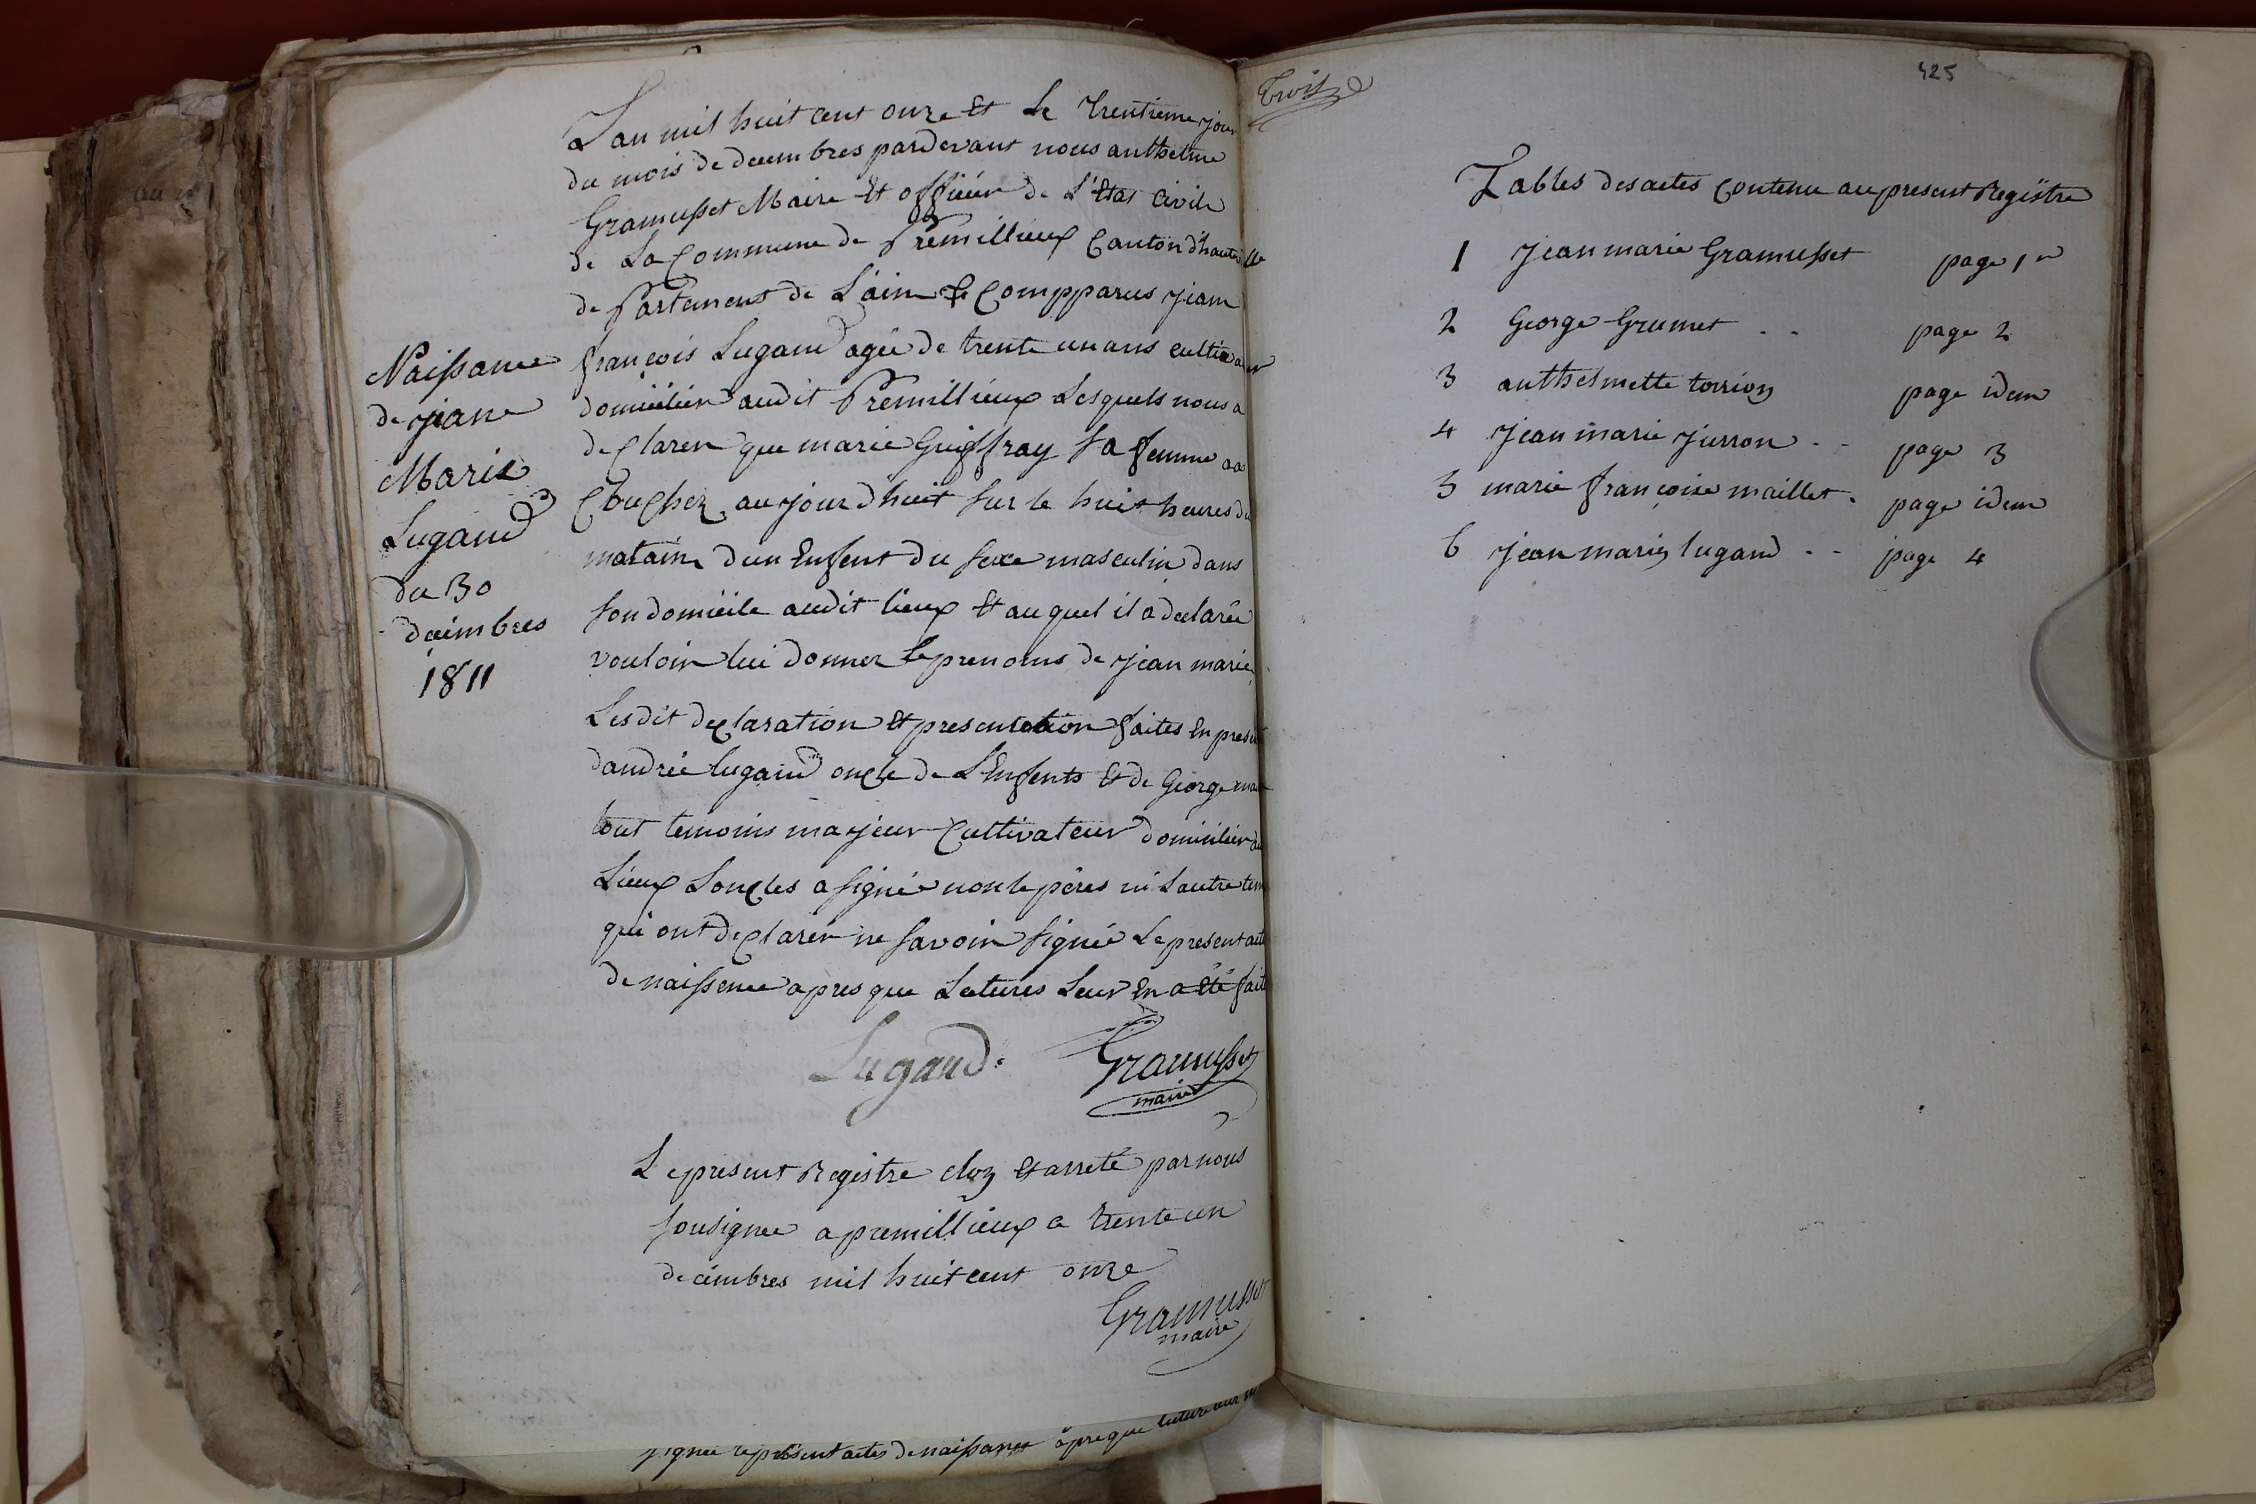 L'an mil huit cent onze Et Le trentieme jour
du mois de decembres pardevant nous anthelme
Gramusset Maire Et officier de L'Etat Civile
de La Commune de Prémillieux Canton d'hauteville
de Partement de L'ain Et Compparus jean
françois Lugand agée de trente un ans cultivateur
domicilier audit Prémillieux Lesquels nous a
declarer que marie Guiffray sa femme aa
Couchez aujourd'huit sur le huit heures du
matain d'un Enfent du sexe masculin dans
son domicile audit lieux Et auquel il a declarée
vouloir lui donner le prenoms de jean marie
Lesdit declaration Et presentation faites En presence
d'andrée lugand oncle de L'Enfents Et de George
tout temoins majeur Cultivateur domicilier au
Lieux Loncles a signée non le péres ni Lautre tem
qui ont declarer ne savoir signée Le present acte
de naissence apres que Lectures Leur En a Eté faite
Lugand
Gramusset
maire
Naissance
de jeane
Marie
Lugand
du 30
decembres
1811
Le present Registre cloz Et arreté par nous
sousignee a premillieux a trente un
decembres mil huit cent onze
Gramusset
maire
signée le présent actes de naissance apre que lecture leur
trois
425
Tables des actes Contenu au present Registre
1 jean marie Gramusset page 1re
2 George Grumet . . page 2
3 anthelmette torrion page idem
4 jean marie jurron . . page 3
5 marie françoise maillet . page idem
6 jean marie lugand . . page 4